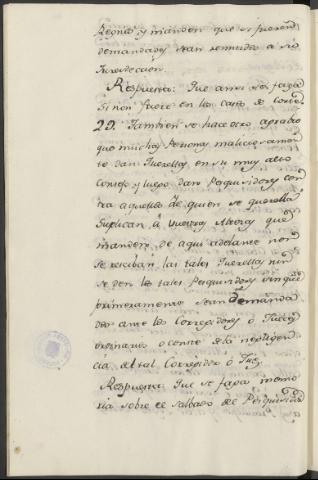 Regno, y manden que si fueren
demandados sean remitidos a su
Jurisdiccion.
Respuesta: Que ansi se faga
Si non fuere en los casos de Corte
29. Tambien se hace otro agrabio
que muchas Personas maliciosamen
te dan Querellas en su muy alto
Consejo y luego dan Pesquisidores con
tra aquellos de quien se querella
Suplican à Vuestras Altezas que
manden de aqui adelante non
se resciban las tales Querellas nin
se den los tales Pesquisidores sin que
primeramente sean Demanda
dos ante los Corregidores ó Jueces
ordinarios o conste de la negligen
cia del tal Corregidor ó Juez.
Respuesta: Que se faga memo
ria sobre el salario de Pesquisidor